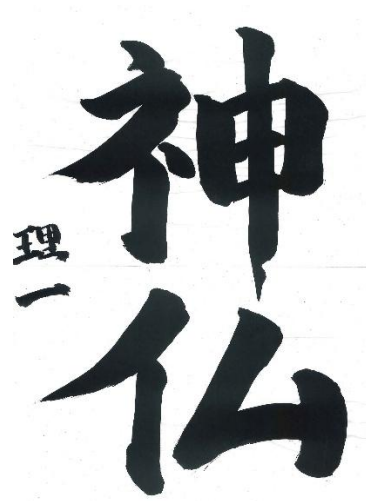 神仏
理一